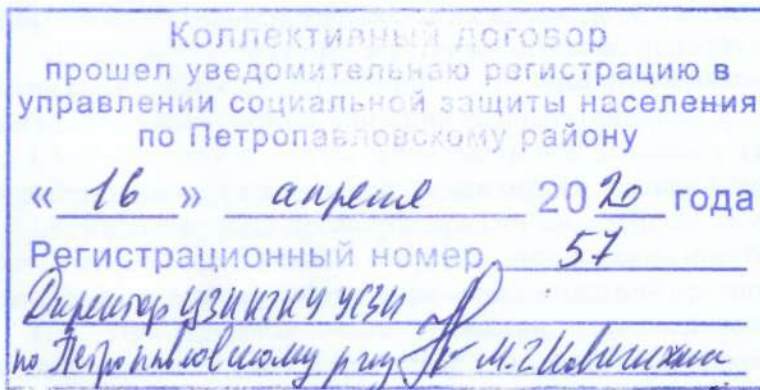 Коллективный договор
прошел уведомительнаю регистрацию в
управлении социальной защиты населения
по Петропавловскому району
« 16 » апреля 20 20 года
Регистрационный номер 57
Директор
по Петропавловскому р-ну М.Г.